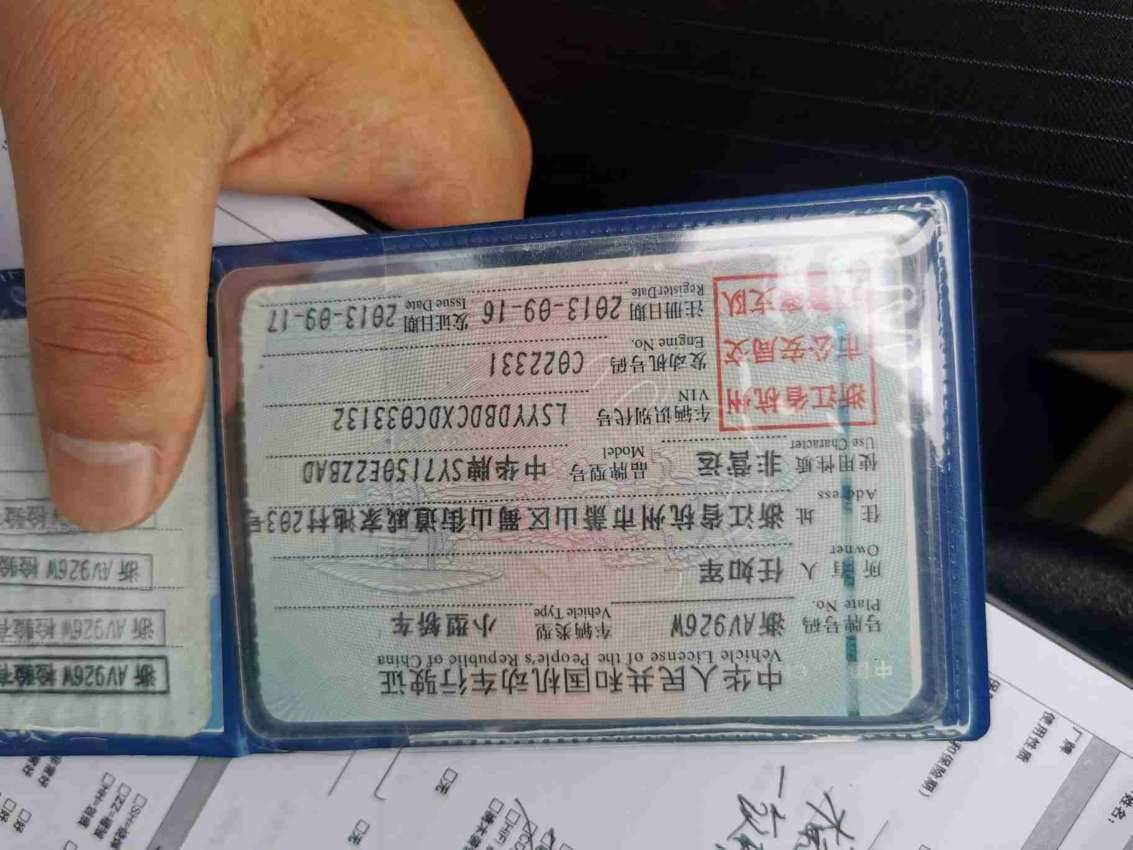 中华人民共和国机动车行驶证
Vehicle License of the People's Republic of China
号牌号码 浙AV926W 车辆类型 小型轿车
Plate No. Vehicle Type
所有人 任如军
Owner
住址 浙江省杭州市萧山区蜀山街道戚家池村203号
Address
使用性质 非营运 品牌型号 中华牌SY7150E2ZBAD
Use Character Model
浙江省杭州
市公安局交
车辆识别代号 LSYYDBDCXDC033132
VIN
发动机号码 C022331
Engine No.
注册日期 2013-09-16 发证日期 2013-09-17
Register Date Issue Date
浙AV926W 检验有
浙AV926W 检验有
浙AV926W 检验
检验
使用性质
厂牌
姓名:
和保险期)